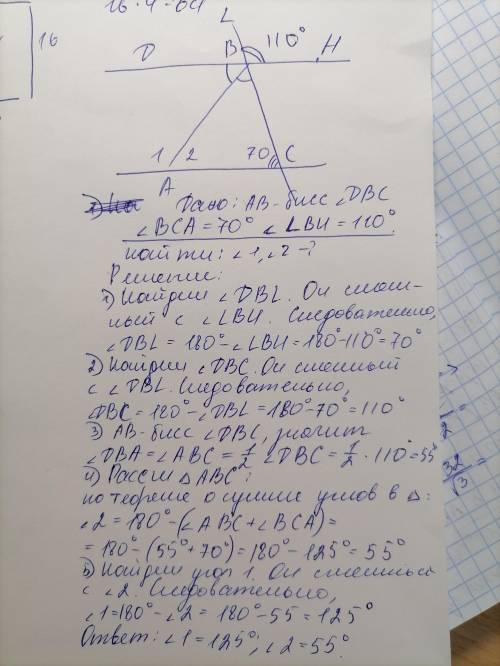 16·4=64
16
L
D B 110° H
1 2 70 C
A
Дано: AB-бисс ∠DBC
∠BCA=70° ∠LBH=110°
найти: ∠1,∠2-?
Решение:
1) Найдём ∠DBL. Он смеж-
ный с ∠LBH. Следовательно,
∠DBL = 180°-∠LBH=180°-110°=70°
2) Найдём ∠DBC. Он смежный
с ∠DBL. Следовательно,
∠DBC=180°-∠DBL=180°-70°=110°
3) AB-бисс ∠DBC, значит
∠DBA=∠ABC=1/2 ∠DBC=1/2·110°=55°
4) Рассм △ABC:
по теореме о сумме углов в △:
∠2=180°-(∠ABC+∠BCA)=
=180°-(55°+70°)=180°-125°=55°
5) Найдём угол 1. Он смежный
с ∠2. Следовательно,
∠1=180°-∠2=180°-55=125°
Ответ: ∠1=125°; ∠2=55°.